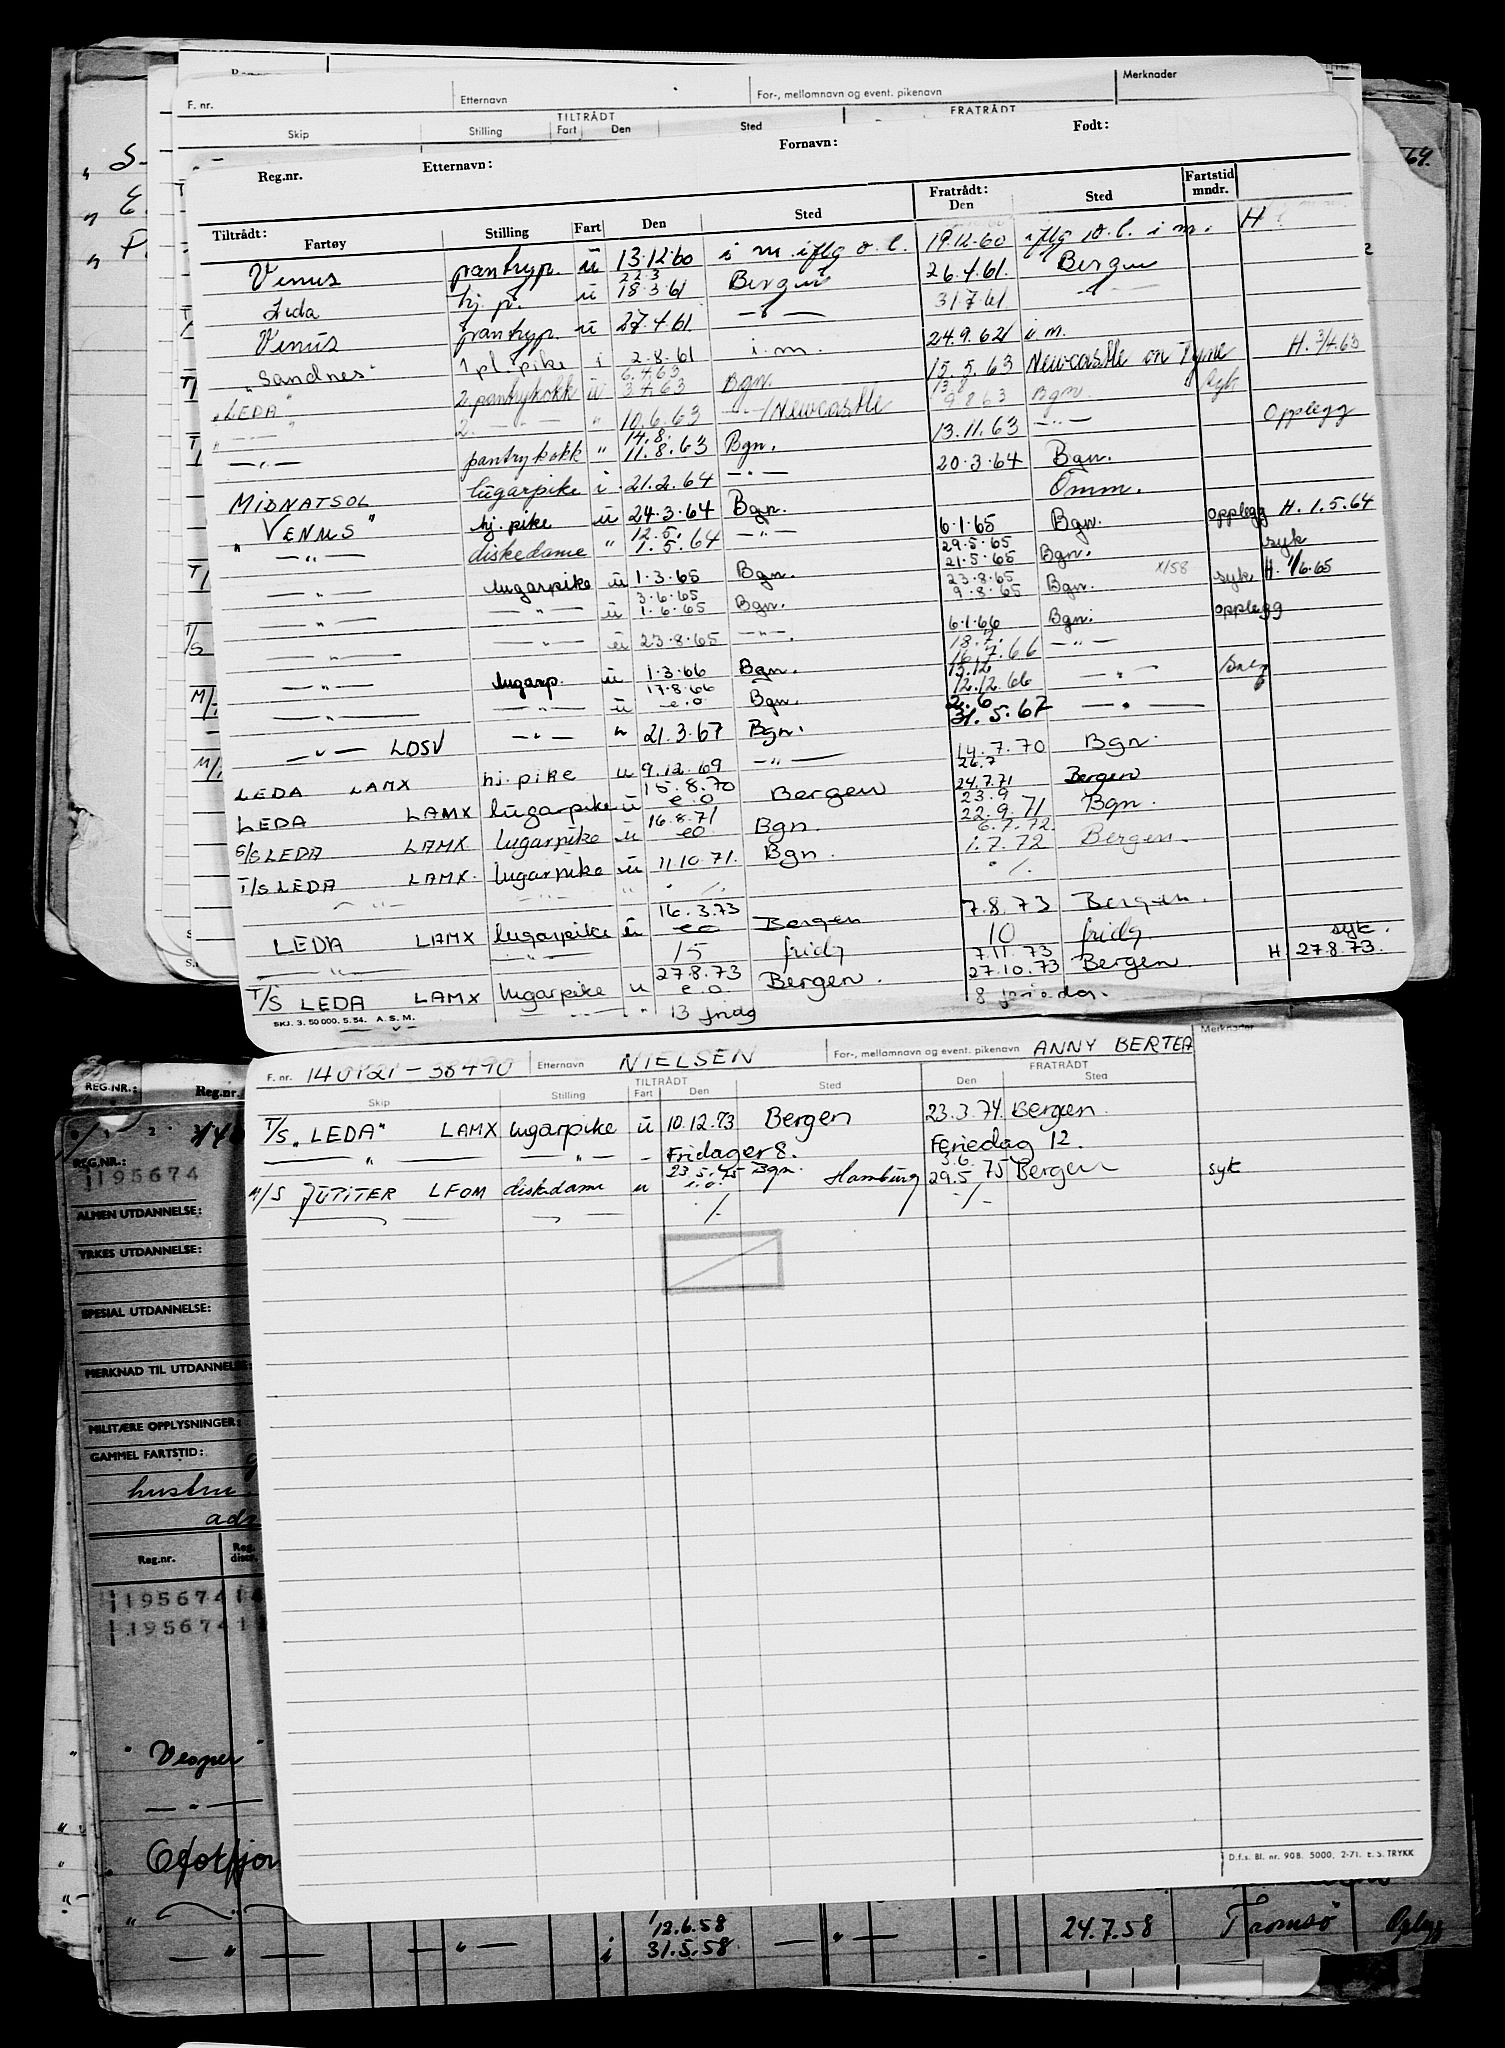 F. nr. Etternavn For-, mellomnavn og event. pikenavn Merknader
TILTRÅDT FRATRÅDT
Skip Stilling Fart Den Sted
Reg.nr. Etternavn: Fornavn: Født:
Tiltrådt: Fratrådt: Fartstid mndr.
Fartøy Stilling Fart Den Sted Den Sted
Venus pantryp. u 13.12.60 i m. iflg o.l. 19.12.60 iflg o.l. i m. H
Leda hj. p. u 22.3 18.3.61 Bergen 26.4.61. Bergen
Venus pantryp. u 27.4.61. -"- 31.7.61 -"-
"Sandnes" 1 pl. pike i 2.8.61 i.m. 24.9.62 i m.
"LEDA" 2 pantrykokk u 6.4.63 3.4.63 Bgn. 15.5.63 Newcastle on Tyne H. 3/4.63
-"- 2. -"- " 10.6.63 -"-/Newcastle 13.8 9.8.63 Bgn. syk
-"- pantrykokk " 14.8. 11.8.63 Bgn. 13.11.63 -"- Opplegg
MIDNATSOL lugarpike i 21.2.64 -"- 20.3.64 Bgn.
"VENUS" hj. pike u 24.3.64 Bgn. Omm.
-"- diskedame " 12.5. 1.5.64 -"- 6.1.65 Bgn. opplegg H. 1.5.64
-"- lugarpike u 1.3.65 Bgn. 29.5.65 21.5.65 Bgn. syk
-"- -"- u 3.6.65 1.6.65 Bgn. 23.8.65 9.8.65 Bgn. x/58 syk H. 1/6.65
-"- -"- u 23.8.65 -"- 6.1.66 Bgn. opplegg
-"- lugarp. u 1.3.66 Bgn. 18.7. 16.7.66 -"-
-"- -"- u 17.8.66 e.o Bgn. 15.12 12.12.66 -"-
-"- LDSV -"- " 21.3.67 Bgn. 2.6 31.5.67 -"-
LEDA LAMX hj. pike u 9.12.69 -"- 14.7.70 Bgn.
LEDA LAMX lugarpike u 15.8.70 e.o Bergen 26.7 24.7.71 Bergen
S/S LEDA LAMX lugarpike u 16.8.71 eo Bgn. 23.9 22.9.71 Bgn.
T/S LEDA LAMX lugarpike u 11.10.71. Bgn. 6.7.72. 1.7.72 Bergen.
-"- -"- " ./. ./.
LEDA LAMX lugarpike u 16.3.73 eo Bergen 7.8.73 Bergen.
-"- -"- 15 fridg 10 fridg
T/S LEDA LAMX lugarpike u 27.8.73 e.o. Bergen. 7.11.73 27.10.73 Bergen H syk. 27.8.73.
-"- -"- " 13 fridg 8 feriedg.
SKJ. 3. 50 000. 5. 54. A. S. M.
F. nr. 140121-38490 Etternavn NIELSEN For-, mellomnavn og event. pikenavn ANNY BERTEA Merknader
TILTRÅDT FRATRÅDT
Skip Stilling Fart Den Sted Den Sted
T/S "LEDA" LAMX lugarpike u 10.12.73 Bergen 23.3.74. Bergen.
-"- -"- - Fridager 8. Feriedag 12.
M/S JUPITER LFOM diskedame u 23.5.75 i.o. Bgn. Hamburg 3.6. 29.5.75 Bergen syk
-"- -"- ./. ./.
D.f.s. Bl. nr. 90B. 5000, 2-71. E. S. TRYKK
REG.NR.: Reg.nr.
REG.NR.:
195674
ALMEN UTDANNELSE:
YRKES UTDANNELSE:
SPESIAL UTDANNELSE:
MERKNAD TIL UTDANNELSE:
MILITÆRE OPPLYSNINGER:
GAMMEL FARTSTID:
hustru
Reg.nr.
195674 1
195674 1
"Vesper"
-"-
Ofotfjor
12.6.58
-"- -"- i 31.5.58 -"- 24.7.58 Tromsø Oplegg